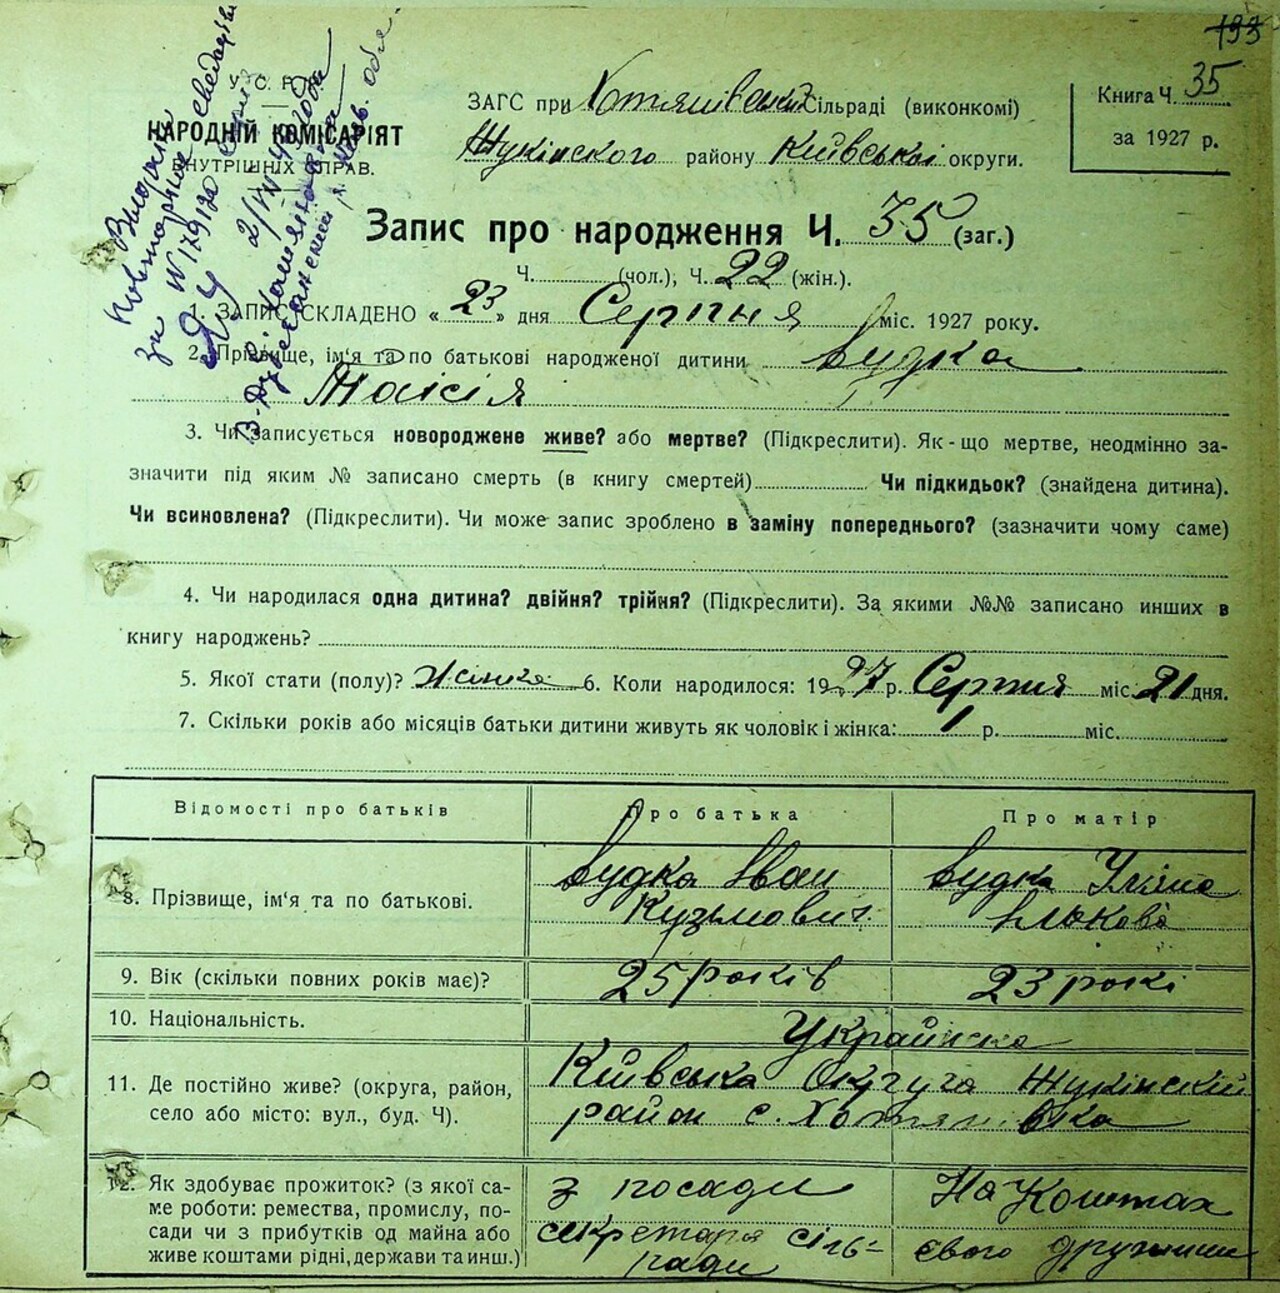 133
35
У. С. Р. Р.
НАРОДНІЙ КОМІСАРІЯТ
ВНУТРІШНІХ СПРАВ.
Книга Ч. 35
за 1927 р.
ЗАГС при Хотянівській Сільраді (виконкомі)
Жукінского району Київської округи.
Запис про народження Ч. 35 (заг.)
Ч. (чол.), Ч. 22 (жін.).
1. ЗАПИС СКЛАДЕНО « 23 » дня Серпня міс. 1927 року.
2. Прізвище, ім'я та по батькові народженої дитини Будка
Таісія
3. Чи записується новороджене живе? або мертве? (Підкреслити). Як-що мертве, неодмінно за-
значити під яким № записано смерть (в книгу смертей) Чи підкидьок? (знайдена дитина).
Чи всиновлена? (Підкреслити). Чи може запис зроблено в заміну попереднього? (зазначити чому саме)
4. Чи народилася одна дитина? двійня? трійня? (Підкреслити). За якими №№ записано инших в
книгу народжень?
5. Якої стати (полу)? Жінка 6. Коли народилося: 1927 р. Серпня міс. 21 дня.
7. Скільки років або місяців батьки дитини живуть як чоловік і жінка: 1 р. міс.
Відомості про батьків Про батька Про матір
8. Прізвище, ім'я та по батькові. Будка Іван Кузьмович. Будка Уляна
9. Вік (скільки повних років має)? 25 років 23 рокі
10. Національність. Українска
11. Де постійно живе? (округа, район, Київська Округа Жукінский
село або місто: вул., буд. Ч). район с. Хотянівка
12. Як здобуває прожиток? (з якої са- з посади На Коштах
ме роботи: ремества, промислу, по-
сади чи з прибутків од майна або секретаря сіль- євого дружини
живе коштами рідні, держави та инш.) ради